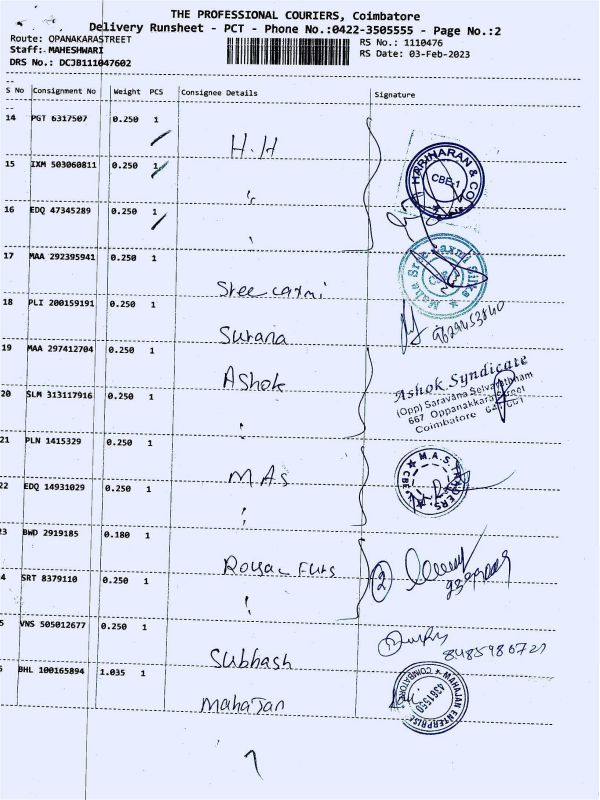 THE PROFESSIONAL COURIERS, Coimbatore
Delivery Runsheet - PCT - Phone No.:0422-3505555 - Page No.:2
Route: OPANAKARASTREET
Staff: MAHESHWARI
DRS No.: DCJB111047602
RS No.: 1110476
RS Date: 03-Feb-2023
S No Consignment No Weight PCS Consignee Details Signature
14 PGT 6317507 0.250 1
H.H
15 IXM 503060811 0.250 1
HARINARAN & CO
CBE-1
16 EDQ 47345289 0.250 1
17 MAA 292395941 0.250 1
Sree Laxmi
Maha Sree Laxmi Silks
18 PLI 200159191 0.250 1
Surana
19 MAA 297412704 0.250 1
Ashok
Ashok Syndicate
(Opp) Saravana Selvarathnam
667 Oppanakkara Street
Coimbatore 641 001
20 SLM 313117916 0.250 1
21 PLN 1415329 0.250 1
MAS
M.A.S. TRADERS
CBE
22 EDQ 14931029 0.250 1
3 BWD 2919185 0.180 1
Royal Furs
2
4 SRT 8379110 0.250 1
5 VNS 505012677 0.250 1
Subhash
8485986721
BHL 100165894 1.035 1
Mahajan
MAHAJAN ENTERPRISE
COIMBATORE
4361550